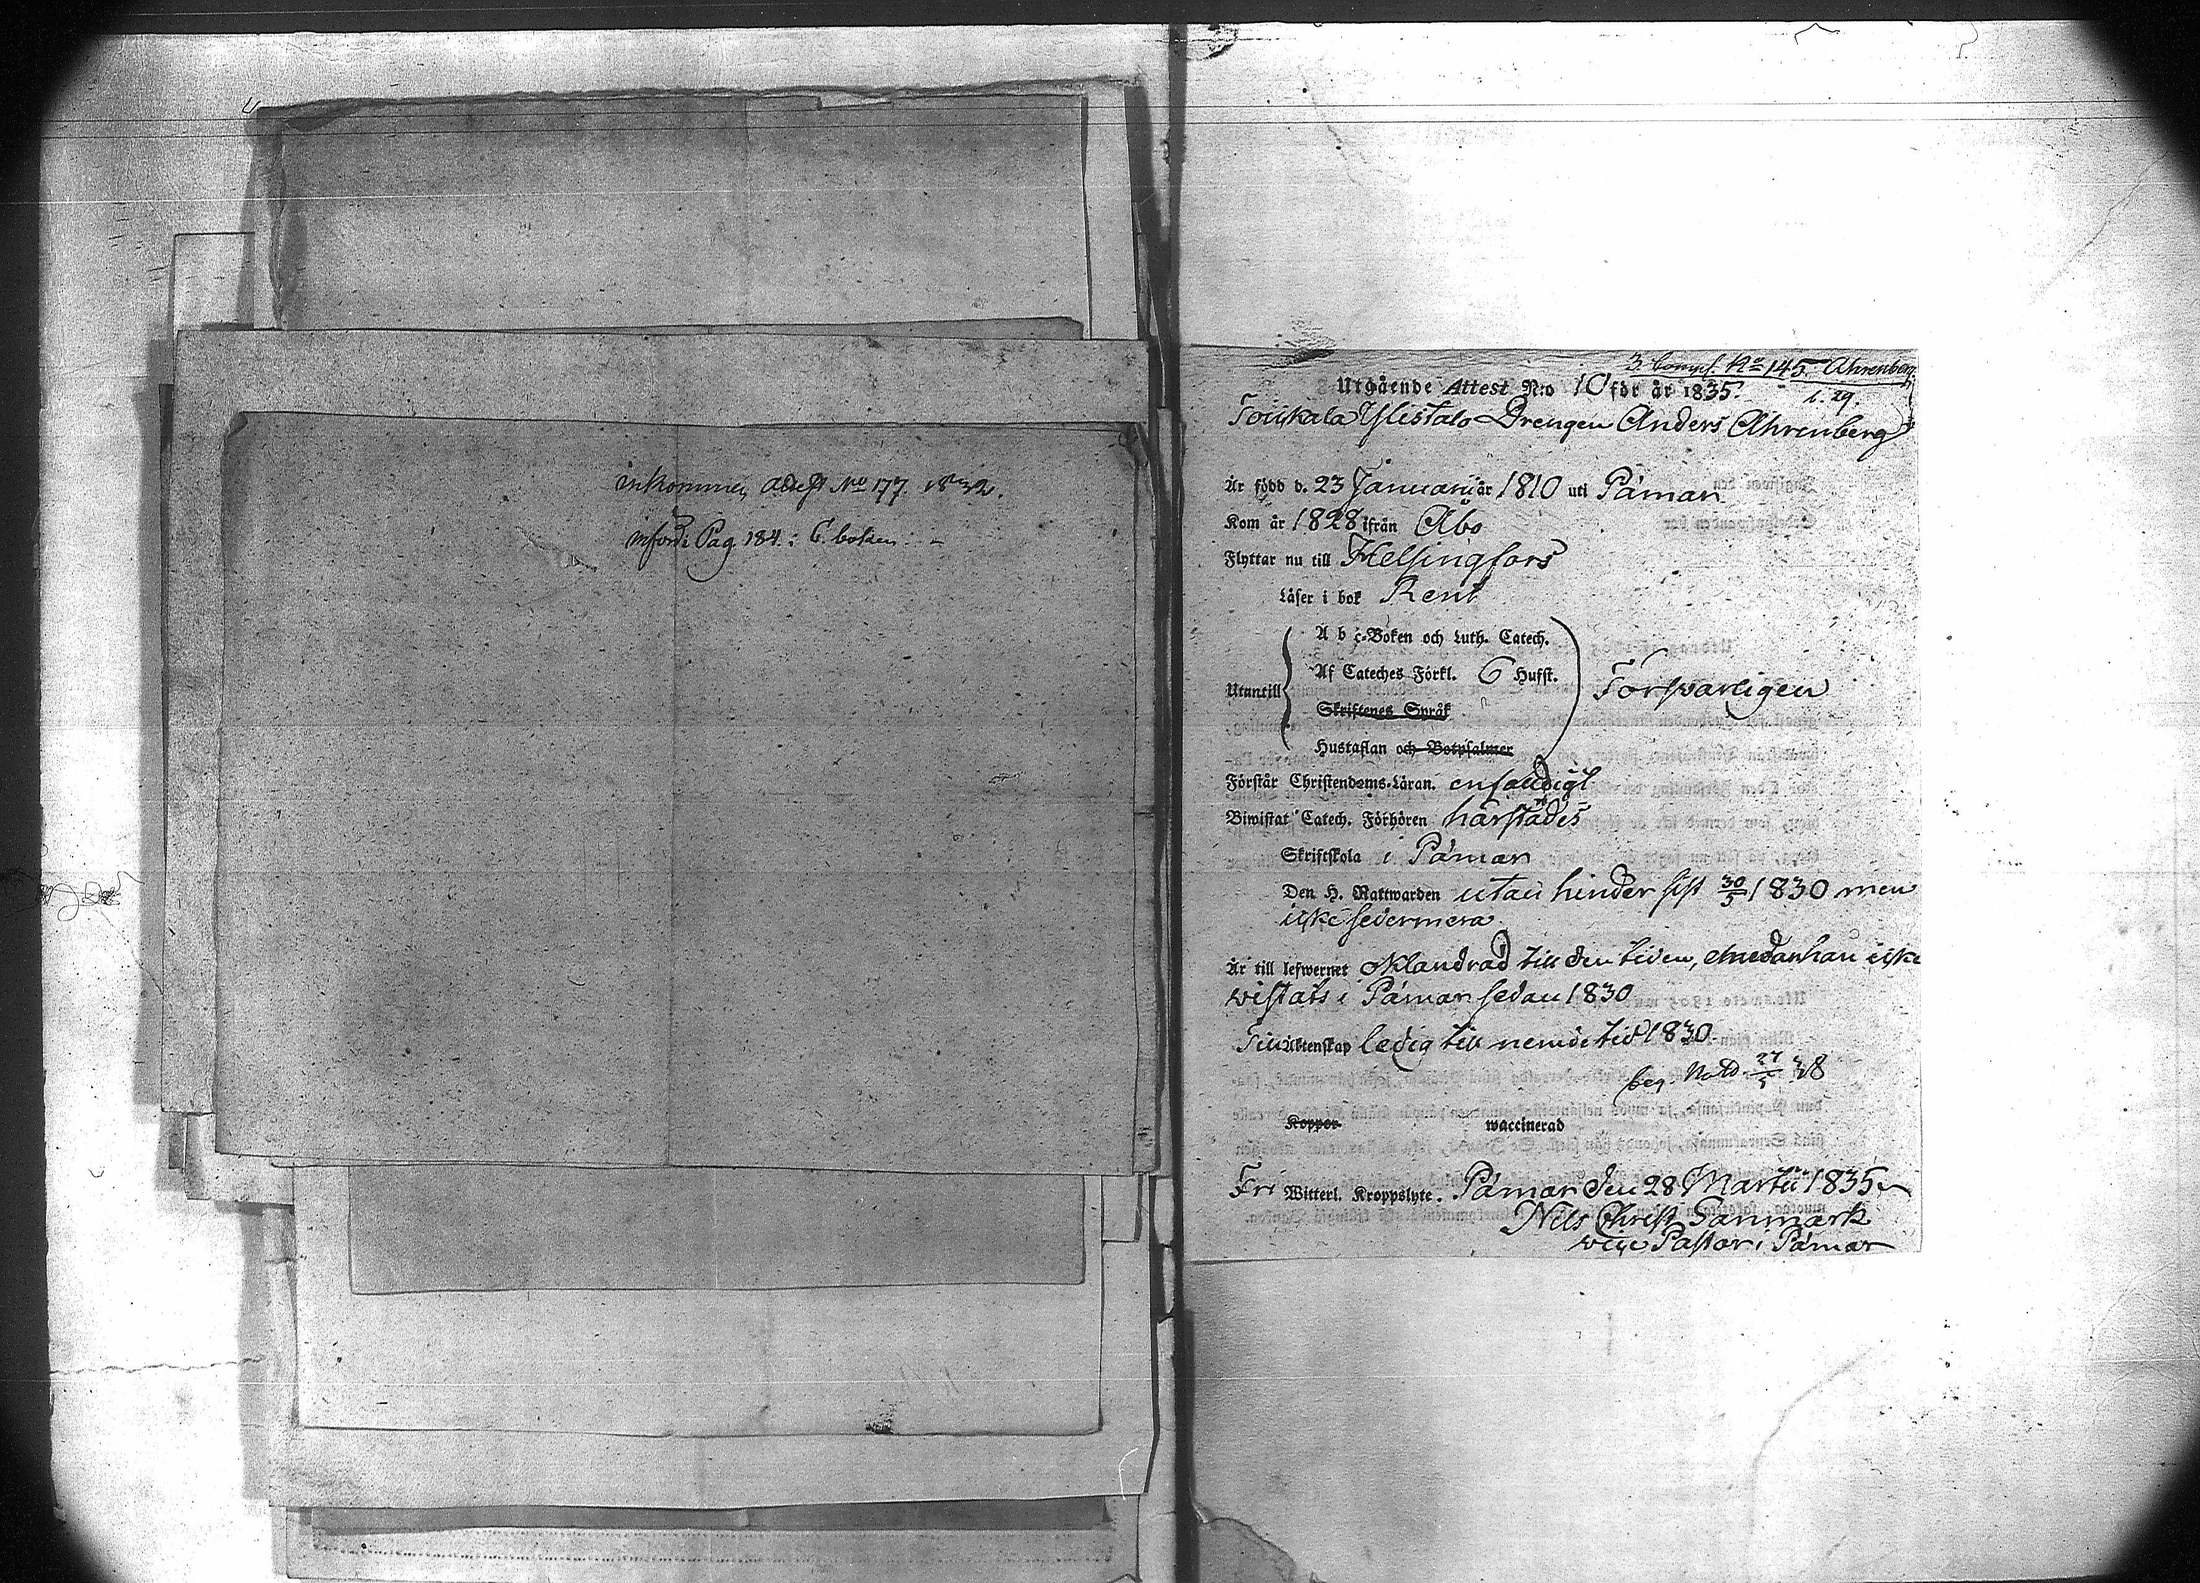 inkommen attest No 177. 1832.
införd Pag 184: C. boken: -
3. Comp. No 145. Ahrenberg.
Utgående Attest N:o 10 för år 1835.
Toukala Ylistalo Drengen Anders Ahrenberg
Är född d. 23 Januarii år 1810 uti Pámar
Kom år 1828 ifrån Åbo
Flyttar nu till Helsingfors
Läser i bok Rent
A b c-Boken och Luth. Catech.
Utantill Af Cateches Förkl. 6 Hufst. Försvarligen
Skriftenes Språk
Hustaflan och Botpsalmer
Förstår Christendoms-Läran. enfaldigt
Biwistat Catech. Förhören härstädes
Skriftskola i Pámar
Den H. Nattwarden utan hinder sist 30/5 1830 men
icke sedermera
Är till lefwernet oklandrad till den tiden, emedan han icke
wistats i Pámar sedan 1830
Till Äktenskap ledig till nemde tid 1830
beg. Nattv. 27/5 38
Koppor waccinerad
Fri Witterl. Kroppslyte. Pámar den 28 Martii 1835
Nils Christ Sanmark
vice Pastor i Pámar